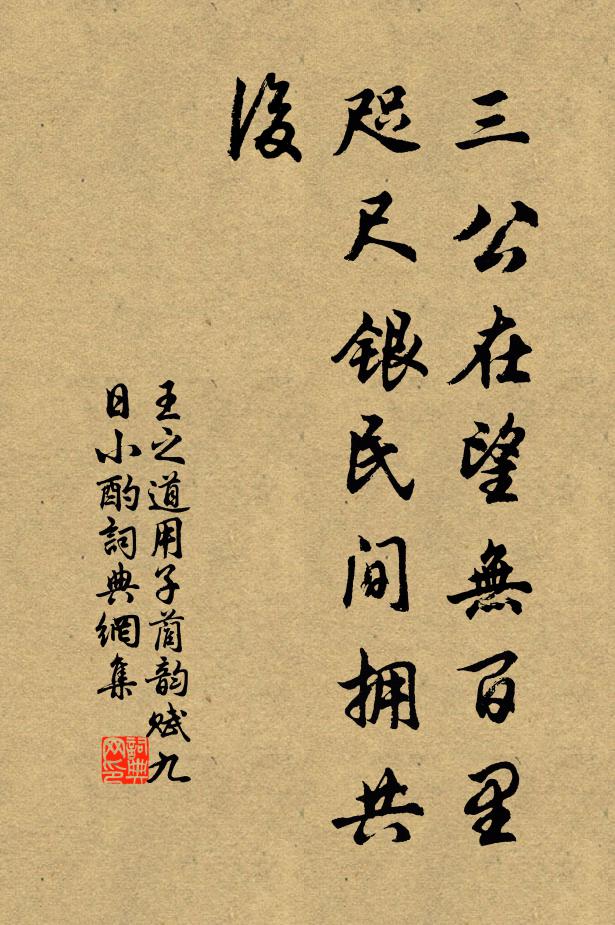 三公在望無百里
咫尺銀民間拥共
後
王之道用子蕳韵赋九
日小酌詞典網集
詞典
网印